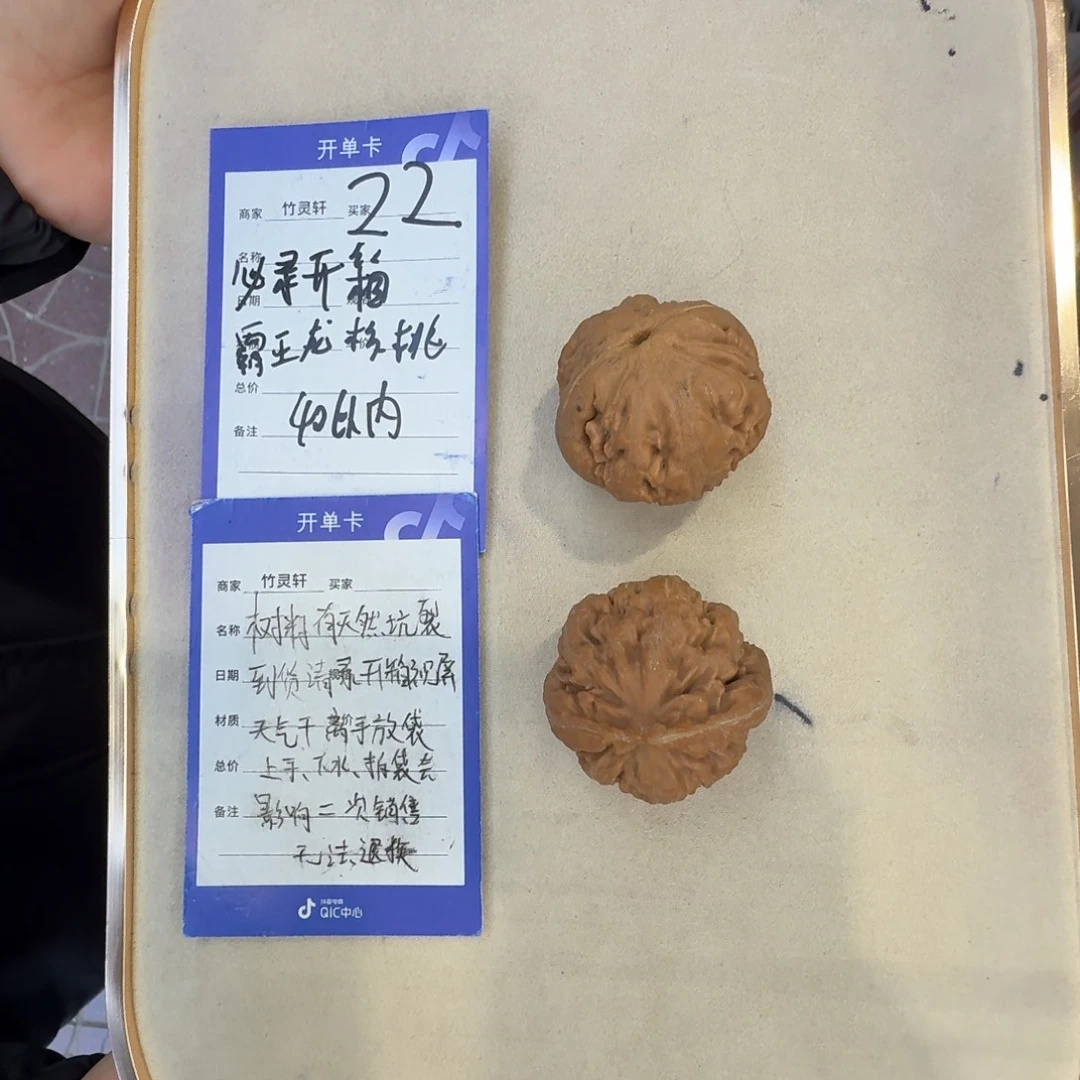 开单卡
商家 竹灵轩 买家 22
名称
必录开箱
日期
霸王龙核桃
总价
40以内
备注
开单卡
商家 竹灵轩 买家
名称 树料有天然坑裂
日期 到货请录开箱视屏
材质 天气干离手放袋
总价 上手、下水、拍袋子
备注 影响二次销售
无法退换
抖音电商
QIC中心